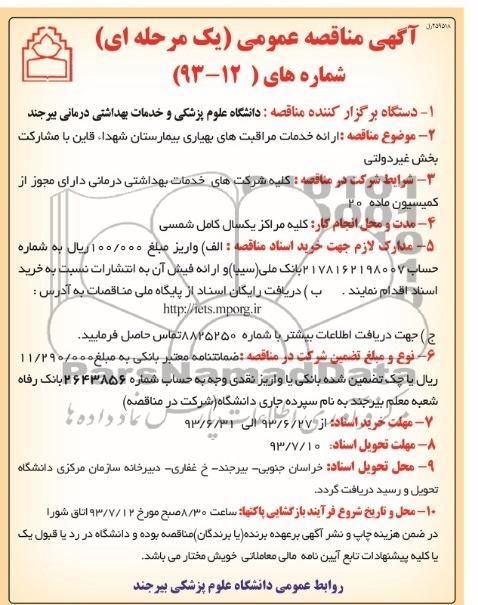 ۲۵۹۵۱۸/ل
آگهی مناقصه عمومی (یک مرحله ای)
شماره های ( ۱۲-۹۳)
۱- دستگاه برگزار کننده مناقصه : دانشگاه علوم پزشکی و خدمات بهداشتی درمانی بیرجند
۲- موضوع مناقصه :ارائه خدمات مراقبت های بهیاری بیمارستان شهداء قاین با مشارکت
بخش غیردولتی
۳- شرایط شرکت در مناقصه : کلیه شرکت های خدمات بهداشتی درمانی دارای مجوز از
کمیسیون ماده ۲۰
۴- مدت و محل انجام کار: کلیه مراکز یکسال کامل شمسی
۵- مدارک لازم جهت خرید اسناد مناقصه : الف) واریز مبلغ ۱۰۰/۰۰۰ریال به شماره
حساب ۲۱۷۸۱۶۲۱۹۸۰۰۷بانک ملی(سیبا)و ارائه فیش آن به انتشارات نسبت به خرید
اسناد اقدام نمایند . ب ) دریافت رایگان اسناد از پایگاه ملی مناقصات به آدرس :
http://iets.mporg.ir
ج ) جهت دریافت اطلاعات بیشتر با شماره ۸۸۲۵۲۵۰تماس حاصل فرمایید.
۶- نوع و مبلغ تضمین شرکت در مناقصه :ضمانتنامه معتبر بانکی به مبلغ۱۱/۲۹۰/۰۰۰
ریال یا چک تضمین شده بانکی یا واریز نقدی وجه به حساب شماره ۲۶۴۳۸۵۶بانک رفاه
شعبه معلم بیرجند به نام سپرده جاری دانشگاه(شرکت در مناقصه)
۷- مهلت خرید اسناد: از ۹۳/۶/۲۷ الی ۹۳/۶/۳۱
۸- مهلت تحویل اسناد: ۹۳/۷/۱۰
۹- محل تحویل اسناد: خراسان جنوبی- بیرجند- خ غفاری- دبیرخانه سازمان مرکزی دانشگاه
تحویل و رسید دریافت گردد.
۱۰- محل و تاریخ شروع فرآیند بازگشایی پاکتها: ساعت ۸/۳۰صبح مورخ ۹۳/۷/۱۲اتاق شورا
در ضمن هزینه چاپ و نشر آگهی برعهده برنده(یا برندگان)مناقصه بوده و دانشگاه در رد یا قبول یک
یا کلیه پیشنهادات تابع آیین نامه مالی معاملاتی خویش مختار می باشد.
روابط عمومی دانشگاه علوم پزشکی بیرجند